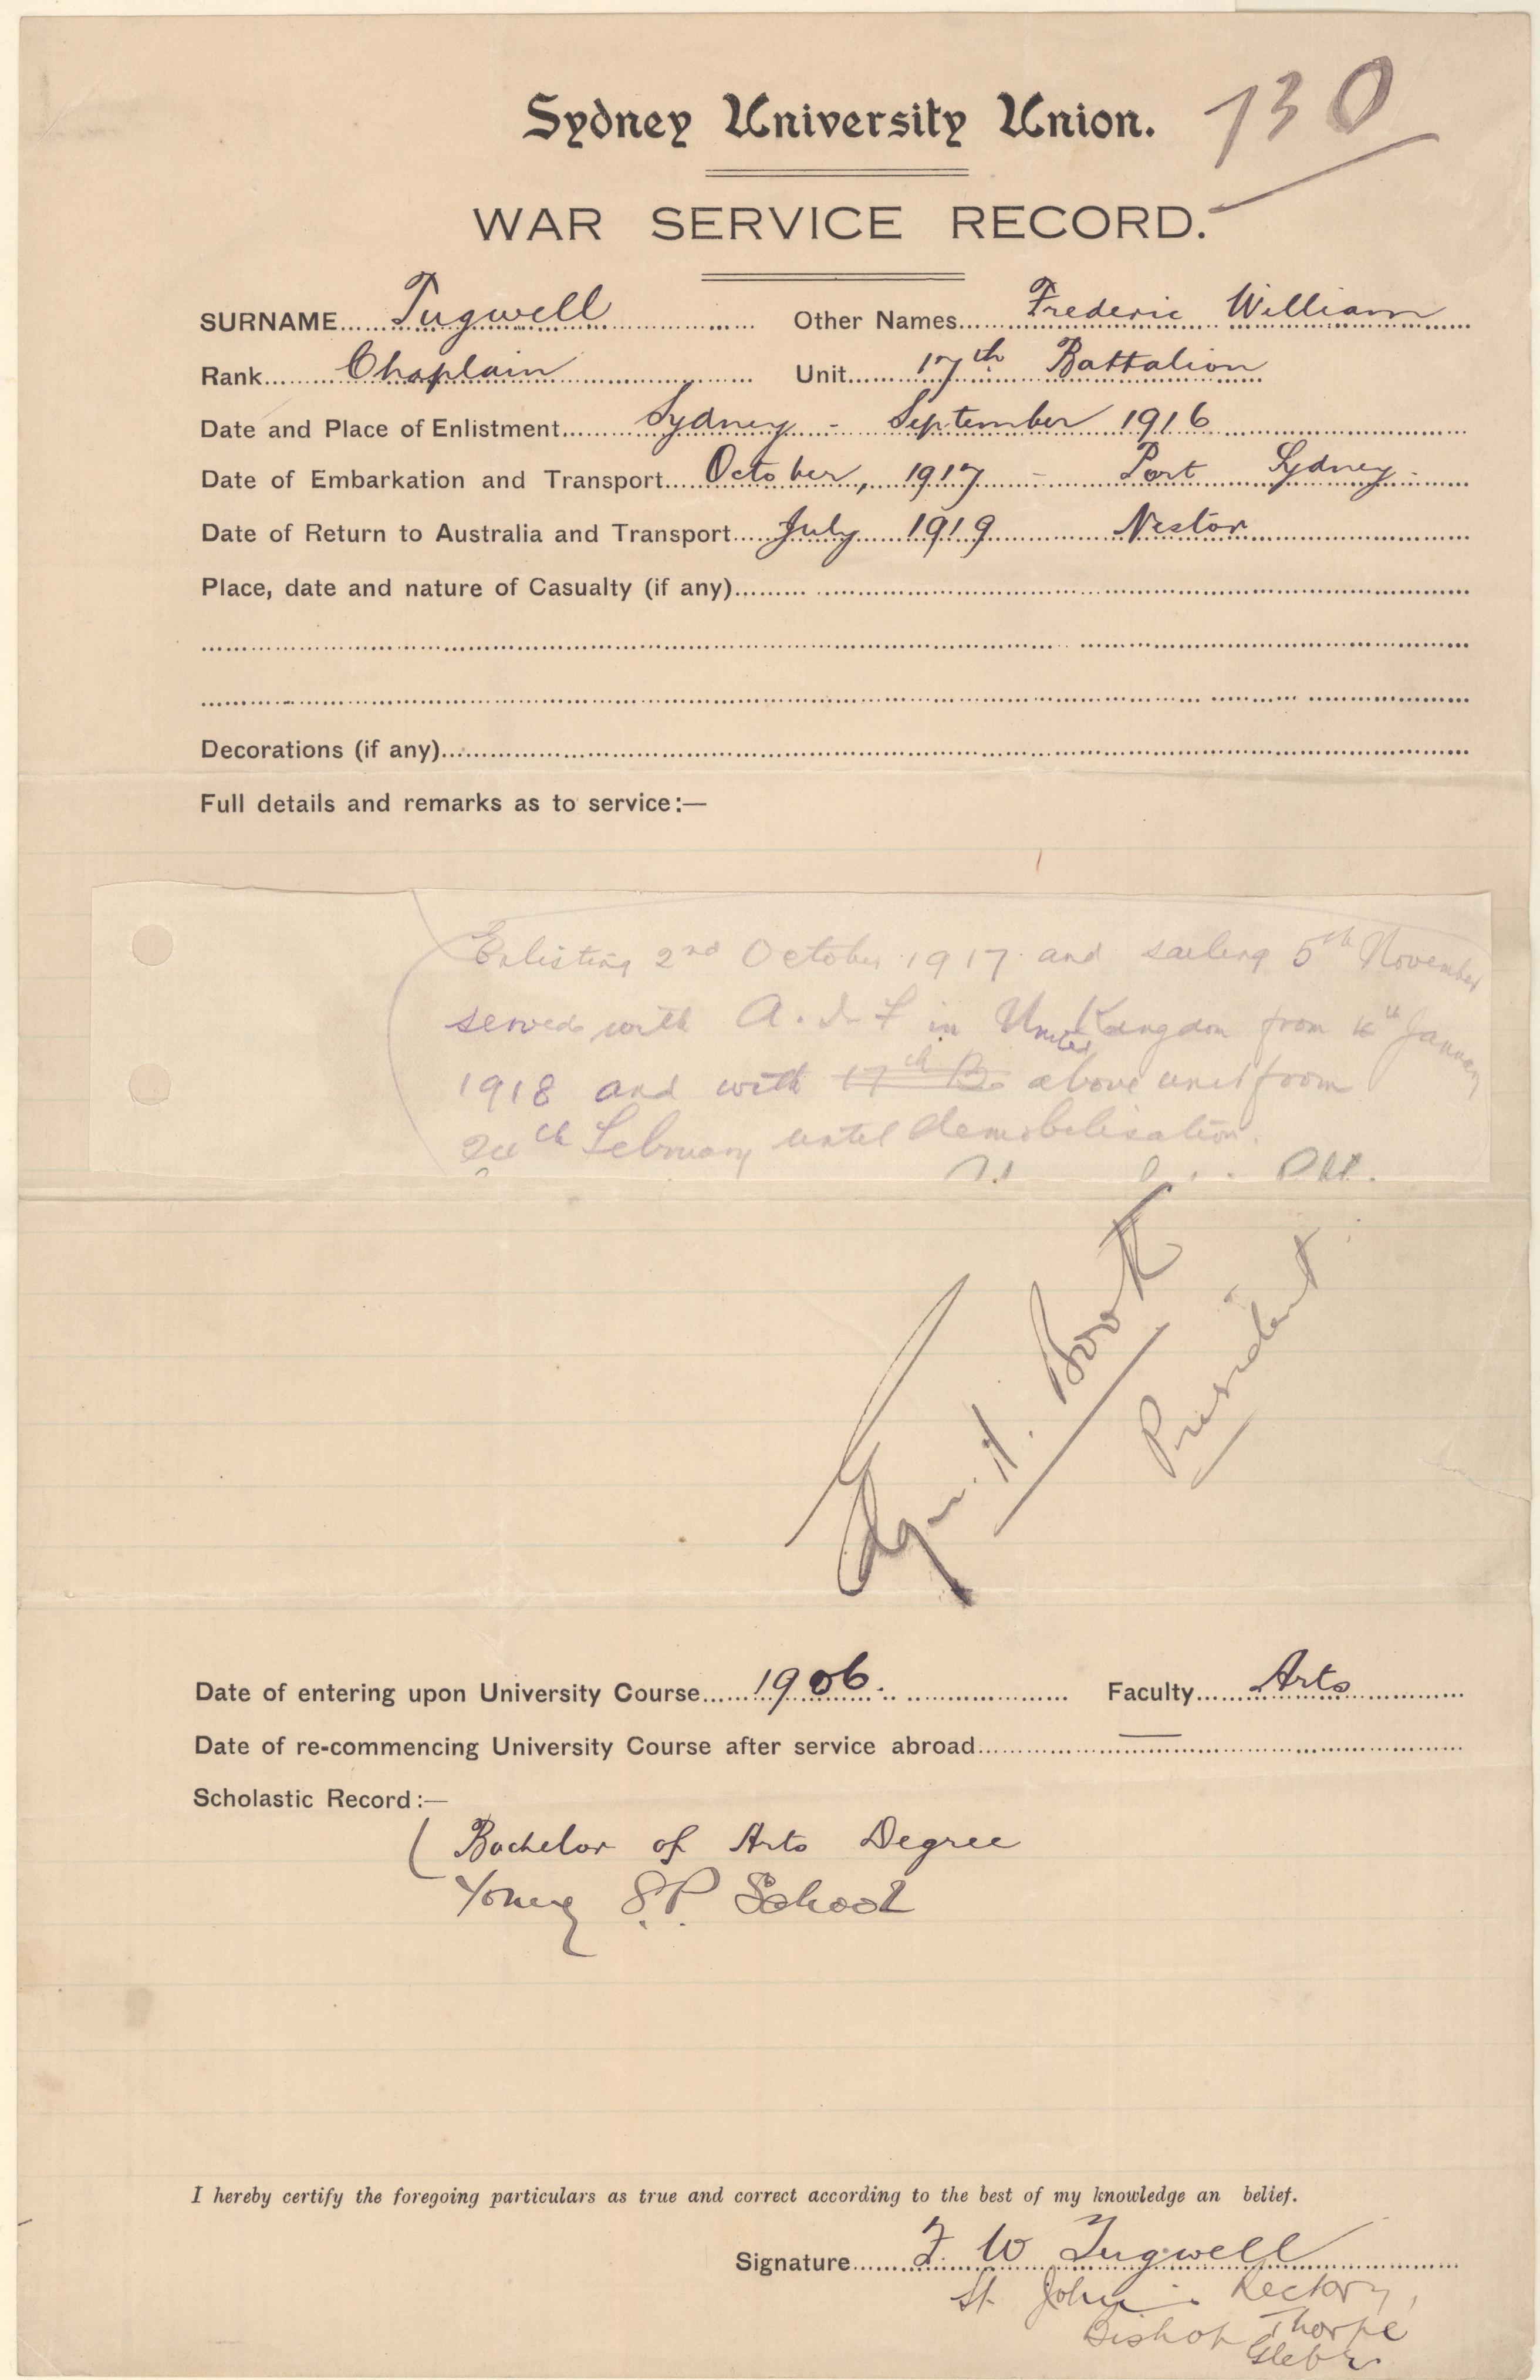 Sydney University Union. 130
WAR SERVICE RECORD.
SURNAME Tugwell Other Names Frederic William
Rank Chaplain Unit 17th Battalion
Date and Place of Enlistment Sydney - September 1916
Date of Embarkation and Transport October, 1917 - Port Sydney.
Date of Return to Australia and Transport July 1919 Nestor
Place, date and nature of Casualty (if any)
Decorations (if any)
Full details and remarks as to service:—
Enlisting 2nd October 1917 and sailing 5th November
served with A.I.F in United Kingdom from January
1918 and with 17th B above unit from
February until demobilisation.
President
Date of entering upon University Course 1906. Faculty Arts
Date of re-commencing University Course after service abroad —
Scholastic Record:—
( Bachelor of Arts Degree
Young S.P. School
I hereby certify the foregoing particulars as true and correct according to the best of my knowledge an belief.
Signature F. W Tugwell
St John's Rectory,
Bishop Thorpe
Glebe